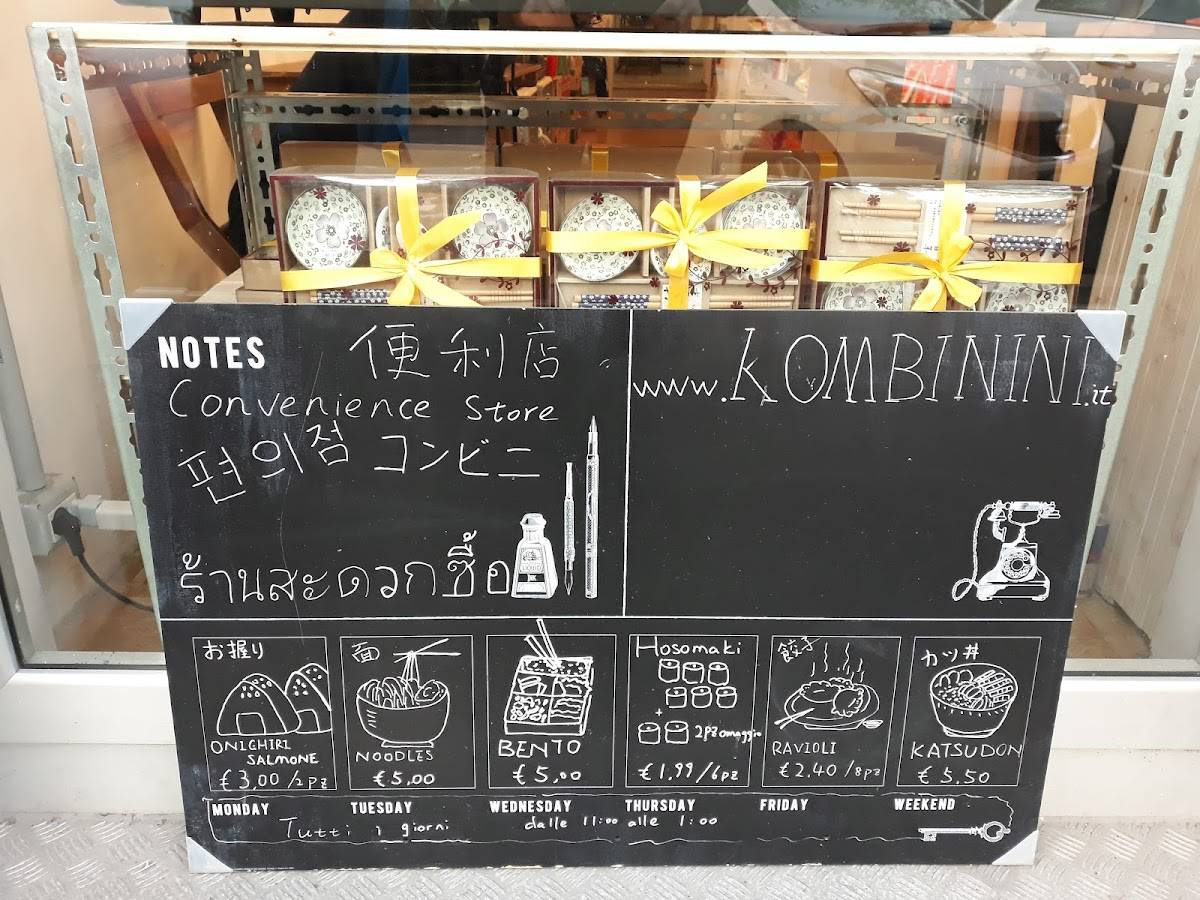 NOTES
便利店
Convenience Store
편의점 コンビニ
ร้านสะดวกซื้อ
www.KOMBININI.it
お握り
ONIGHIRI
SALMONE
€ 3,00 / 2pz
面
NOODLES
€ 5,00
BENTO
€ 5,00
Hosomaki
+
2pz omaggio
€ 1.99 / 6pz
餃子
RAVIOLI
€ 2.40 / 8pz
カツ丼
KATSUDON
€ 5.50
MONDAY TUESDAY WEDNESDAY THURSDAY FRIDAY WEEKEND
Tutti i giorni dalle 11:00 alle 1:00